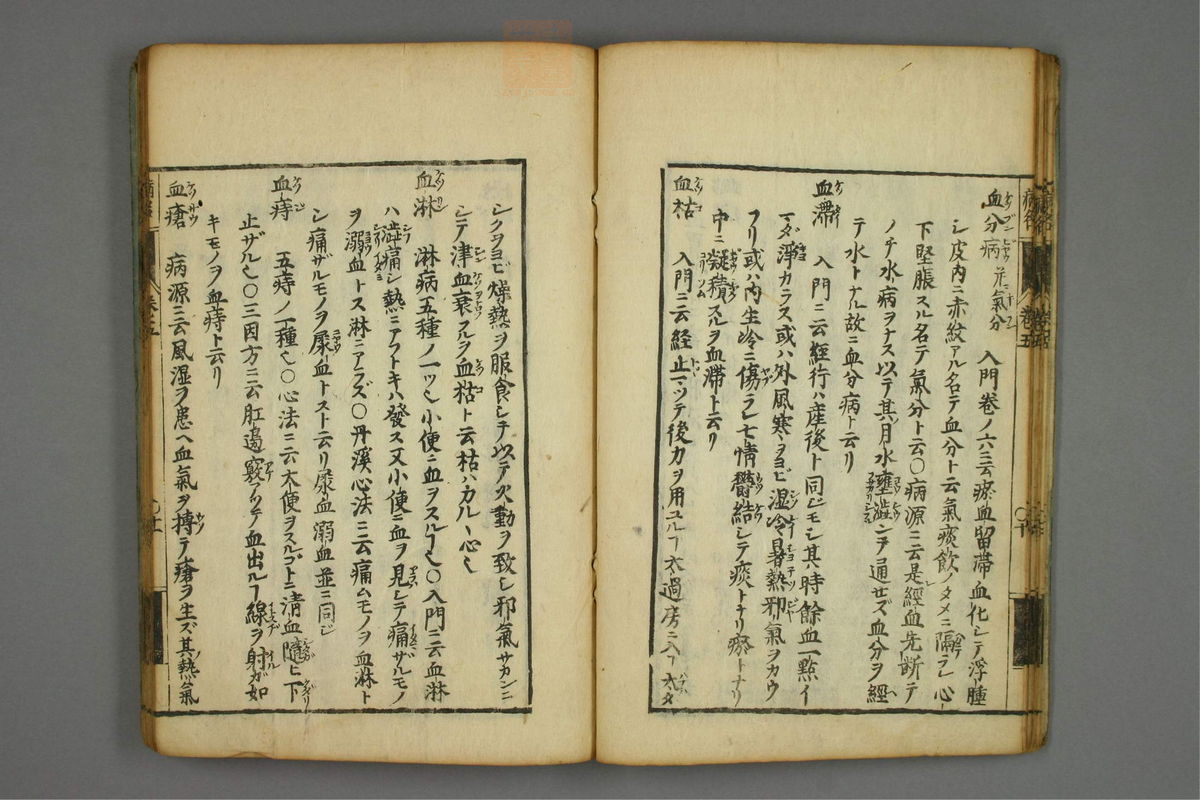 血分病 并氣分
入門卷ノ六ニ云瘀血留滯血化シテ浮腫
シ皮内ニ赤紋アル名テ血分ト云氣痰飲ノタメニ隔ラレ心
下堅脹スル名テ氣分ト云〇病源ニ云是經血先断テ
ノチ水病ヲナス以テ其月水壅澁シテ通ゼズ血分ヲ經
テ水トナル故ニ血分病ト云リ
血滯 入門ニ云經行ハ産後ト同ジモシ其時餘血一點イ
マダ淨カラズ或ハ外風寒ヲヨビ湿冷暑熱邪氣ヲカウ
フリ或ハ内生冷ニ傷ラレ七情鬱結シテ痰トナリ瘀トナリ
中ニ凝積スルヲ血滯ト云リ
血枯 入門ニ云經止マツテ後力ヲ用ユルヿ太過房ニ入ヿ太タ
シクヲヨビ燥熱ヲ服食シテ以テ火動ヲ致シ邪氣サカンニ
シテ津血衰フルヲ血枯ト云枯ハカルヽ心也
血淋 淋病五種ノ一ツ也小便ニ血ヲスルヿ也〇入門ニ云血淋
ハ澁痛シ熱ニアフトキハ發ス又小便ニ血ヲ見シテ痛ザルモノ
ヲ溺血トス淋ニアラズ〇丹溪心法ニ云痛ムモノヲ血淋ト
シ痛ザルモノヲ尿血トスト云リ尿血溺血並ニ同ジ
血痔 五痔ノ一種也〇心法ニ云大便ヲスルゴトニ清血隨ヒ下
止ザル也〇三因方ニ云肛邉竅アリテ血出ルヿ線ヲ射ガ如
キモノヲ血痔ト云リ
血瘡 病源ニ云風湿ヲ患ヘ血氣ヲ搏テ瘡ヲ生ズ其熱氣